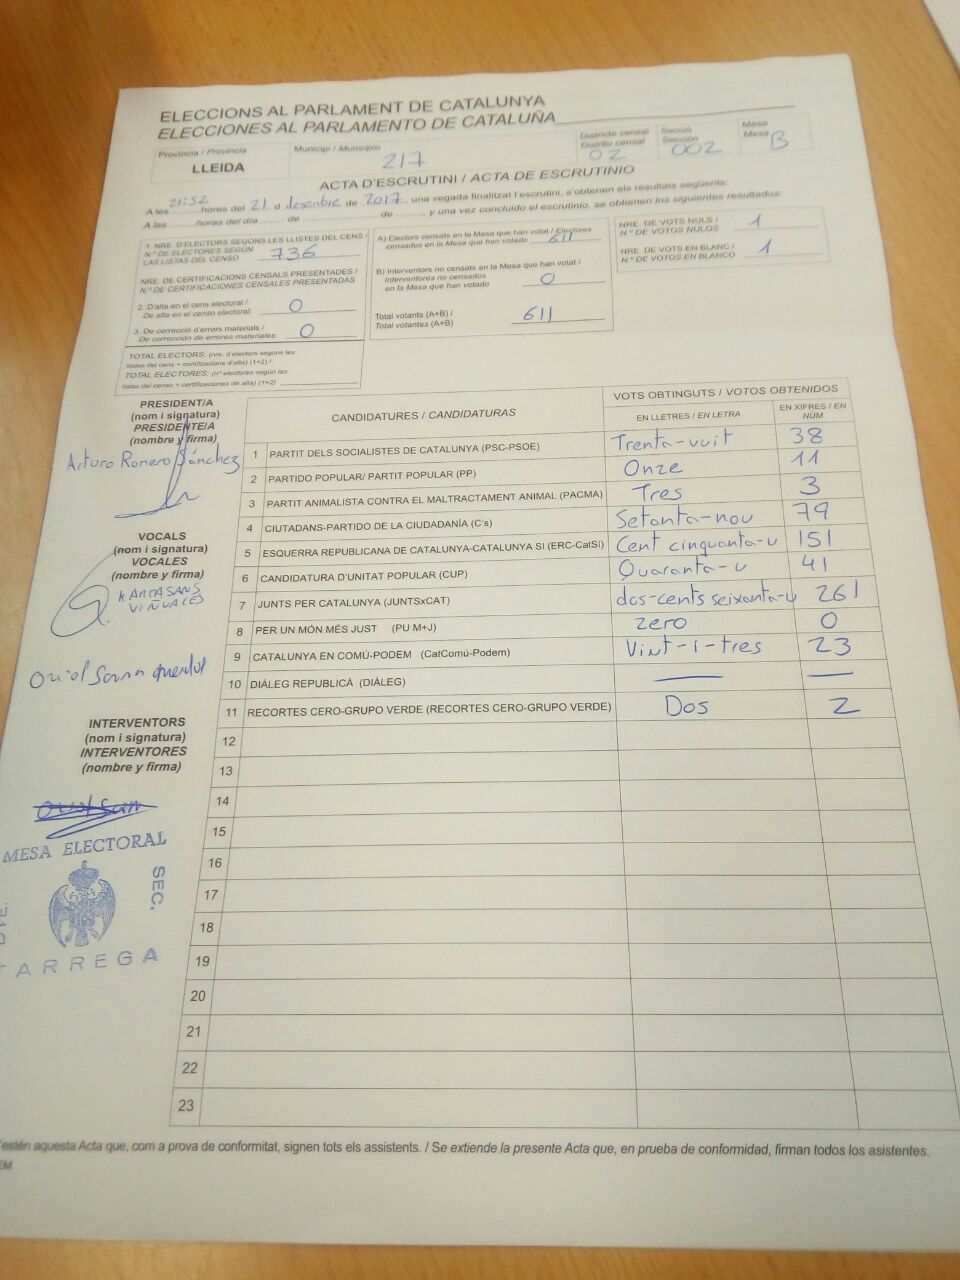 ELECCIONS AL PARLAMENT DE CATALUNYA
ELECCIONES AL PARLAMENTO DE CATALUÑA
Província / Provincia
LLEIDA
Municipi / Municipio
217
Districte censal
Distrito censal
02
Secció
Sección
002
Mesa
Mesa
B
ACTA D'ESCRUTINI / ACTA DE ESCRUTINIO
A les 21:52 hores del 21 d desembre de 2017, una vegada finalitzat l'escrutini, s'obtenen els resultats següents:
A las ........ horas del día ........ de ........ de ........, y una vez concluido el escrutinio, se obtienen los siguientes resultados:
1. NRE. D'ELECTORS SEGONS LES LLISTES DEL CENS /
N.º DE ELECTORES SEGÚN
LAS LISTAS DEL CENSO
736
NRE. DE CERTIFICACIONS CENSALS PRESENTADES /
N.º DE CERTIFICACIONES CENSALES PRESENTADAS
2. D'alta en el cens electoral /
De alta en el censo electoral:
0
3. De correcció d'errors materials /
De corrección de errores materiales:
0
TOTAL ELECTORS: (nre. d'electors segons les
llistes del cens + certificacions d'alta) (1+2) /
TOTAL ELECTORES: (nº electores según las
listas del censo + certificaciones de alta) (1+2)
A) Electors censats en la Mesa que han votat / Electores
censados en la Mesa que han votado
611
B) Interventors no censats en la Mesa que han votat /
Interventores no censados
en la Mesa que han votado
0
Total votants (A+B) /
Total votantes (A+B)
611
NRE. DE VOTS NULS /
N.º DE VOTOS NULOS
1
NRE. DE VOTS EN BLANC /
N.º DE VOTOS EN BLANCO
1
PRESIDENT/A
(nom i signatura)
PRESIDENTE/A
(nombre y firma)
Arturo Romero Sánchez
VOCALS
(nom i signatura)
VOCALES
(nombre y firma)
MARTA SANS
VIÑUALES
Oriol Sanna
INTERVENTORS
(nom i signatura)
INTERVENTORES
(nombre y firma)
MESA ELECTORAL
SEC.
TARREGA
CANDIDATURES / CANDIDATURAS
VOTS OBTINGUTS / VOTOS OBTENIDOS
EN LLETRES / EN LETRA
EN XIFRES / EN NÚM
1 PARTIT DELS SOCIALISTES DE CATALUNYA (PSC-PSOE) Trenta-vuit 38
2 PARTIDO POPULAR/ PARTIT POPULAR (PP) Onze 11
3 PARTIT ANIMALISTA CONTRA EL MALTRACTAMENT ANIMAL (PACMA) Tres 3
4 CIUTADANS-PARTIDO DE LA CIUDADANÍA (C's) Setanta-nou 79
5 ESQUERRA REPUBLICANA DE CATALUNYA-CATALUNYA SÍ (ERC-CatSí) Cent cinquanta-u 151
6 CANDIDATURA D'UNITAT POPULAR (CUP) Quaranta-u 41
7 JUNTS PER CATALUNYA (JUNTSxCAT) dos-cents seixanta-u 261
8 PER UN MÓN MÉS JUST (PU M+J) zero 0
9 CATALUNYA EN COMÚ-PODEM (CatComú-Podem) Vint-i-tres 23
10 DIÀLEG REPUBLICÀ (DIÀLEG) — —
11 RECORTES CERO-GRUPO VERDE (RECORTES CERO-GRUPO VERDE) Dos 2
12
13
14
15
16
17
18
19
20
21
22
23
estén aquesta Acta que, com a prova de conformitat, signen tots els assistents. / Se extiende la presente Acta que, en prueba de conformidad, firman todos los asistentes.
EM